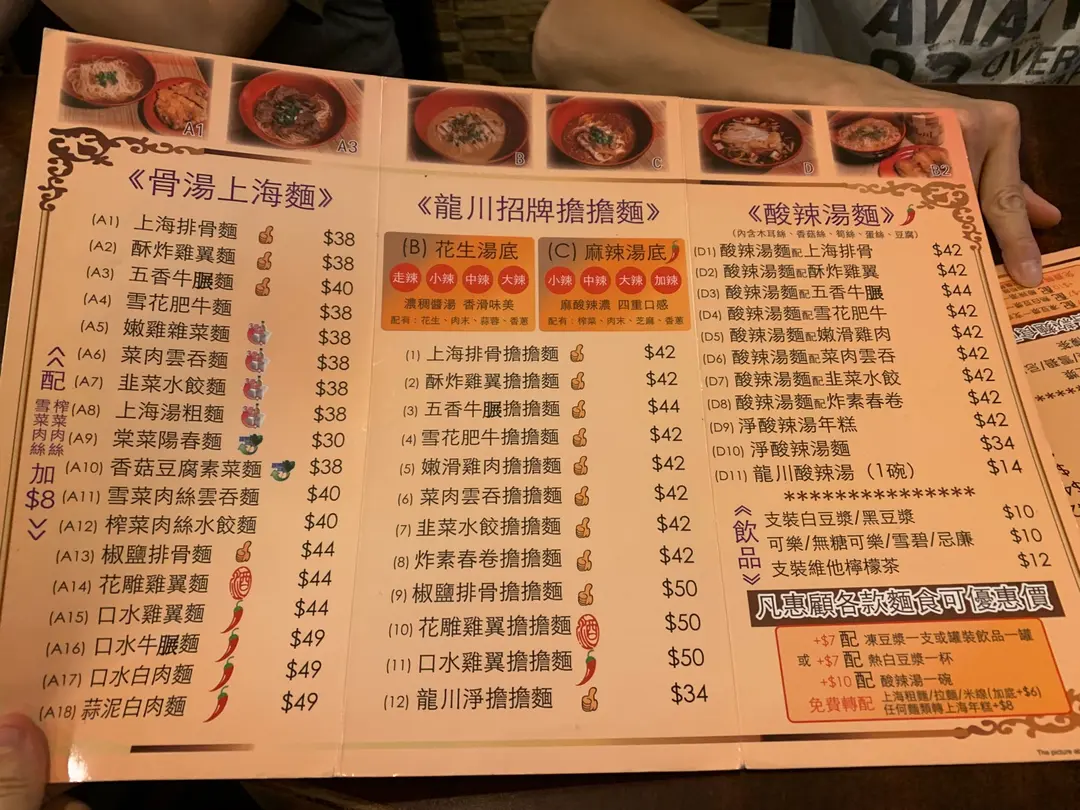 AVIAT
OVER
A1
A3
B
C
D
B2
《骨湯上海麵》
(A1) 上海排骨麵 $38
(A2) 酥炸雞翼麵 $38
(A3) 五香牛𦟌麵 $40
(A4) 雪花肥牛麵 $38
(A5) 嫩雞雜菜麵 $38
(A6) 菜肉雲吞麵 $38
(A7) 韭菜水餃麵 $38
(A8) 上海湯粗麵 $38
(A9) 棠菜陽春麵 $30
(A10) 香菇豆腐素菜麵 $38
(A11) 雪菜肉絲雲吞麵 $40
(A12) 榨菜肉絲水餃麵 $40
(A13) 椒鹽排骨麵 $44
(A14) 花雕雞翼麵 酒 $44
(A15) 口水雞翼麵 $44
(A16) 口水牛𦟌麵 $49
(A17) 口水白肉麵 $49
(A18) 蒜泥白肉麵 $49
《配
榨菜肉絲
雪菜肉絲
加
$8》
《龍川招牌擔擔麵》
(B) 花生湯底
走辣 小辣 中辣 大辣
濃稠醬湯 香滑味美
配有：花生、肉末、蒜蓉、香蔥
(C) 麻辣湯底
小辣 中辣 大辣 加辣
麻酸辣濃 四重口感
配有：榨菜、肉末、芝麻、香蔥
(1) 上海排骨擔擔麵 $42
(2) 酥炸雞翼擔擔麵 $42
(3) 五香牛𦟌擔擔麵 $44
(4) 雪花肥牛擔擔麵 $42
(5) 嫩滑雞肉擔擔麵 $42
(6) 菜肉雲吞擔擔麵 $42
(7) 韭菜水餃擔擔麵 $42
(8) 炸素春卷擔擔麵 $42
(9) 椒鹽排骨擔擔麵 $50
(10) 花雕雞翼擔擔麵 酒 $50
(11) 口水雞翼擔擔麵 $50
(12) 龍川淨擔擔麵 $34
《酸辣湯麵》
(內含木耳絲、香菇絲、筍絲、蛋絲、豆腐)
(D1) 酸辣湯麵配上海排骨 $42
(D2) 酸辣湯麵配酥炸雞翼 $42
(D3) 酸辣湯麵配五香牛𦟌 $44
(D4) 酸辣湯麵配雪花肥牛 $42
(D5) 酸辣湯麵配嫩滑雞肉 $42
(D6) 酸辣湯麵配菜肉雲吞 $42
(D7) 酸辣湯麵配韭菜水餃 $42
(D8) 酸辣湯麵配炸素春卷 $42
(D9) 淨酸辣湯年糕 $42
(D10) 淨酸辣湯麵 $34
(D11) 龍川酸辣湯（1碗） $14
***************
《飲品》
支裝白豆漿/黑豆漿 $10
可樂/無糖可樂/雪碧/忌廉 $10
支裝維他檸檬茶 $12
凡惠顧各款麵食可優惠價
+$7 配 凍豆漿一支或罐裝飲品一罐
或 +$7 配 熱白豆漿一杯
+$10 配 酸辣湯一碗
免費轉配 上海粗麵/拉麵/米線(加底+$6)
任何麵類轉上海年糕+$8
The picture